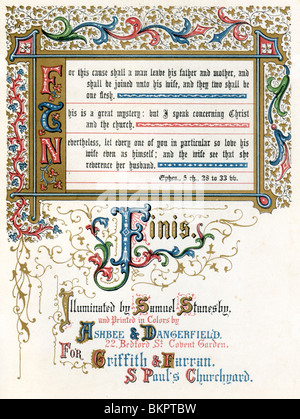 For this cause shall a man leave his father and mother, and
shall be joined unto his wife, and they two shall be
one flesh.
This is a great mystery: but I speak concerning Christ
and the church.
Nevertheless, let every one of you in particular so love his
wife even as himself; and the wife see that she
reverence her husband.
Ephes. 5 ch. 28 to 33 vv.
Finis.
Illuminated by Samuel Stanesby,
and Printed in Colors by
Ashbee & Dangerfield.
22. Bedford St Covent Garden.
For Griffith & Farran.
S Paul's Churchyard.
alamy
Image ID: BKPTBW
www.alamy.com